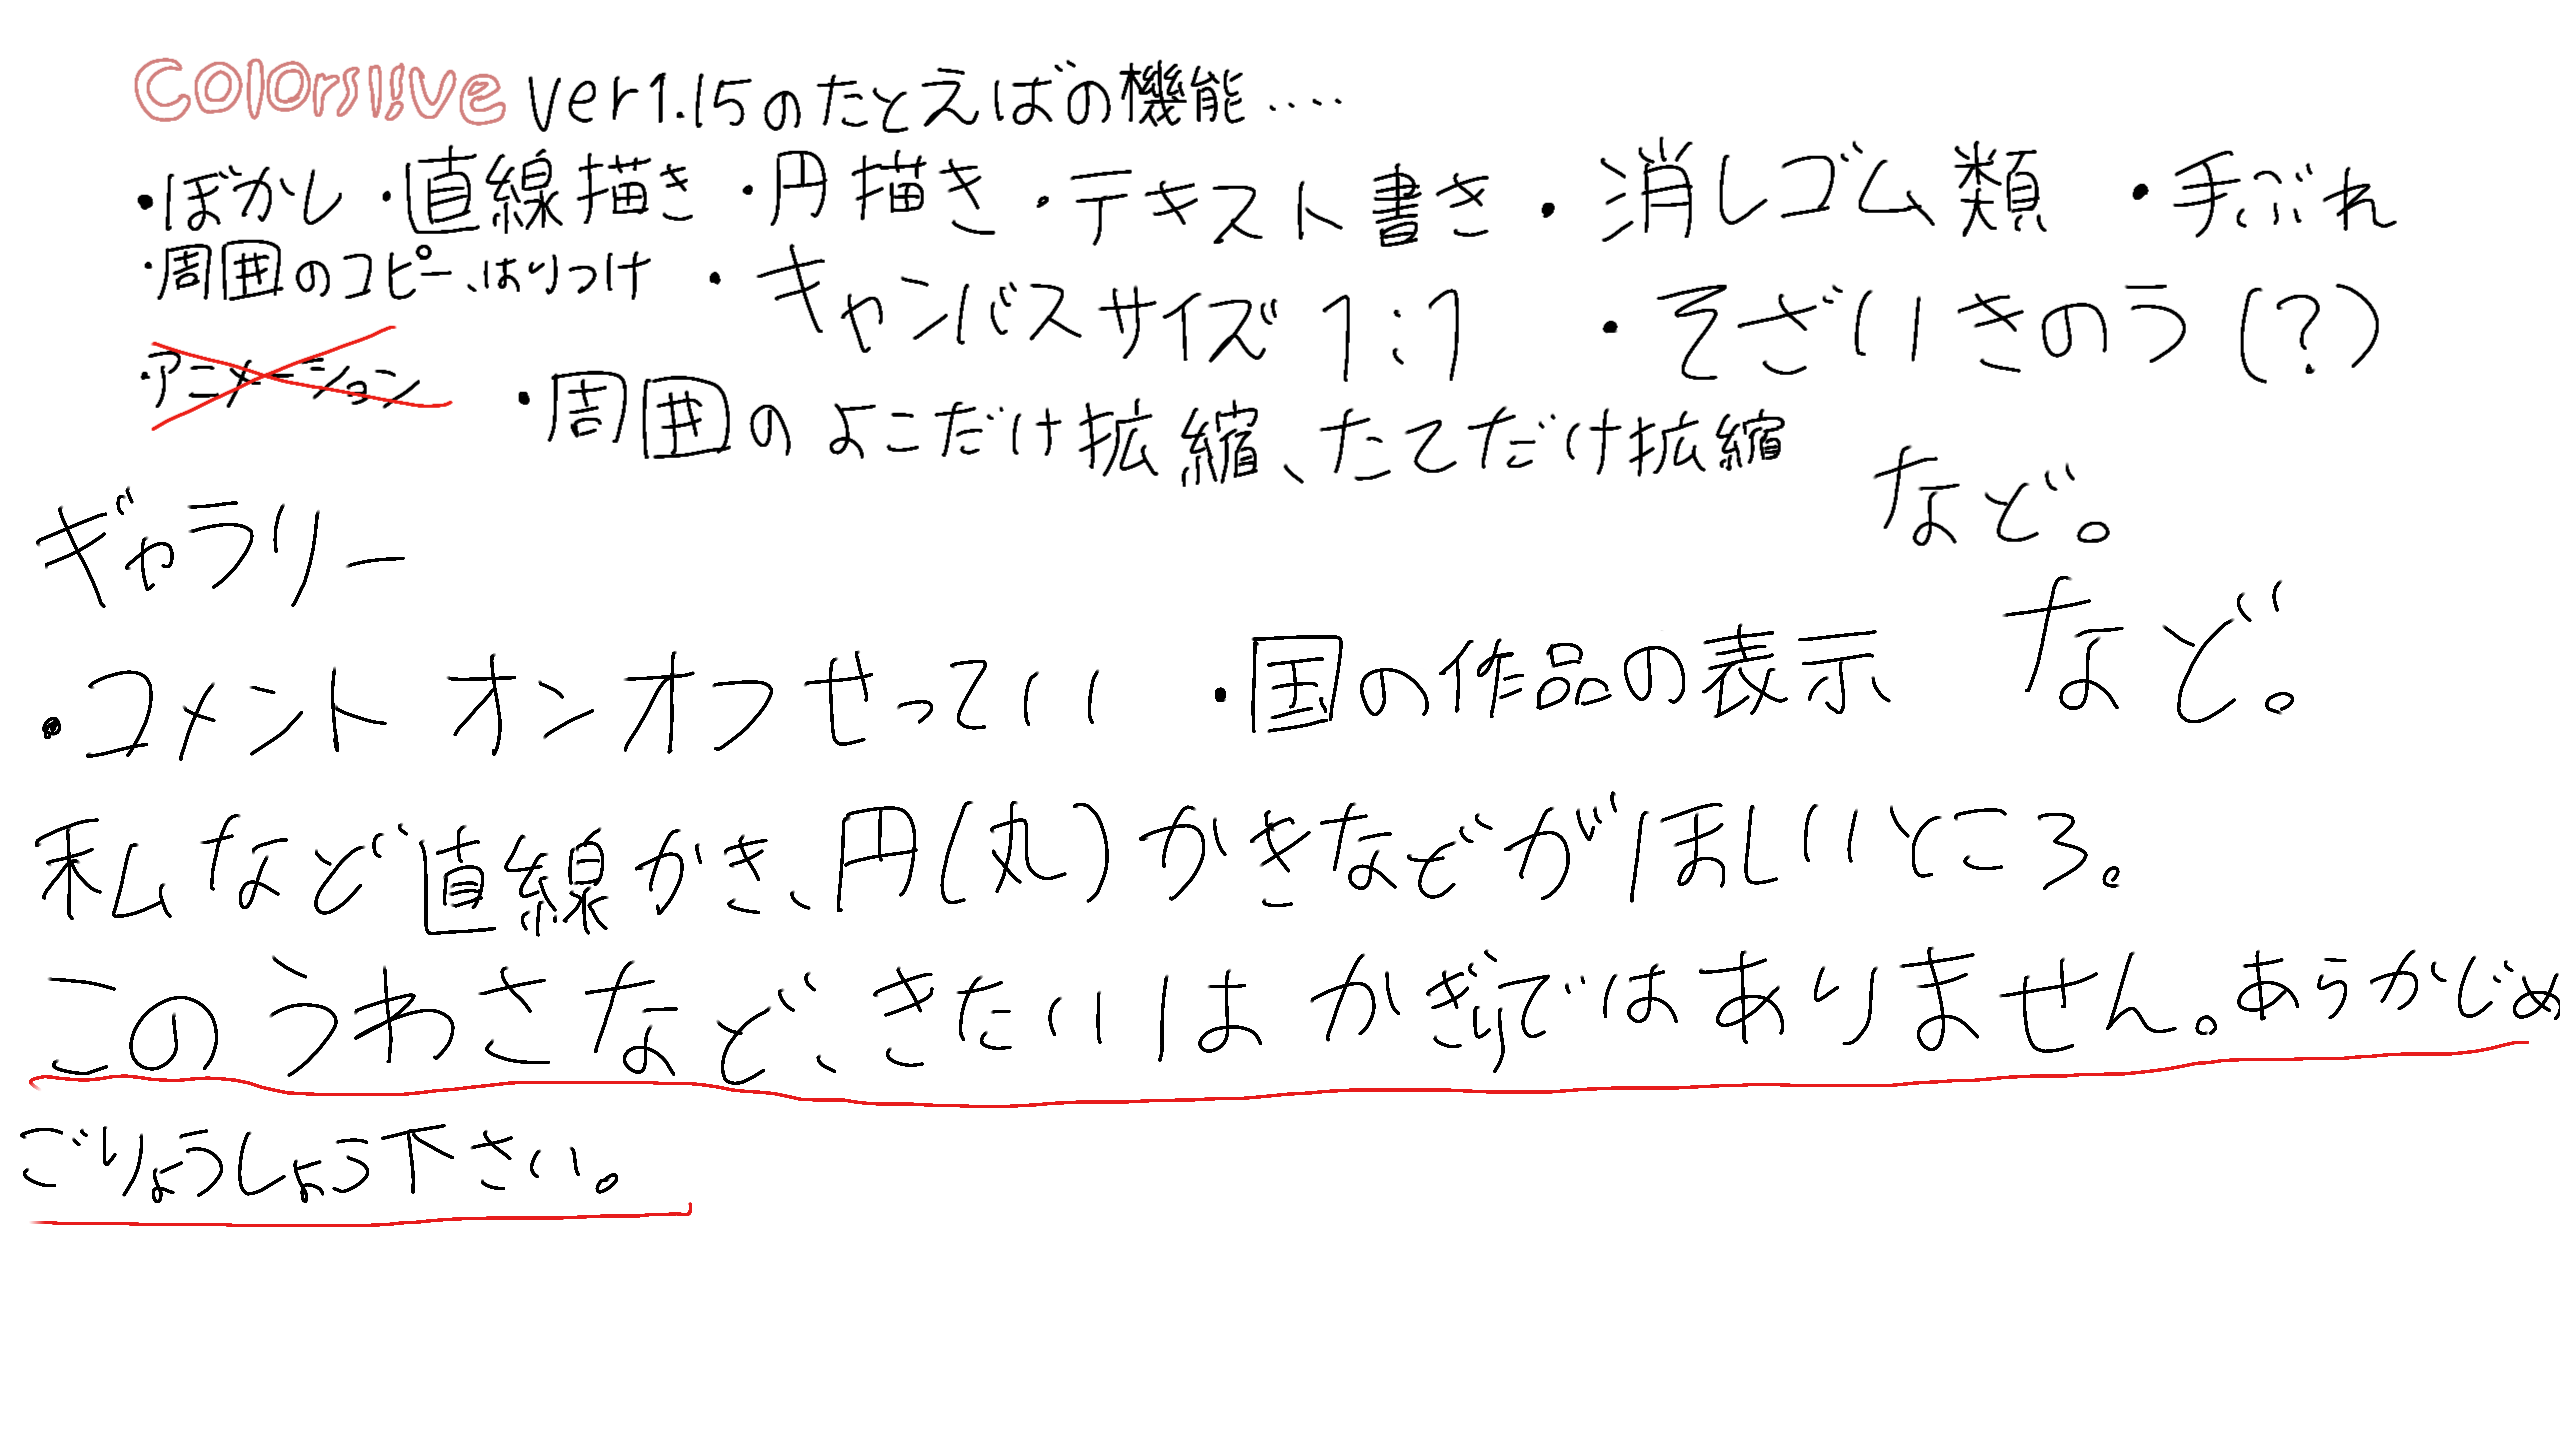 Colorslive ver1.15のたとえばの機能‥‥
・ぼかし ・直線描き ・円描き ・テキスト書き ・消しゴム類 ・手ぶれ
・周囲のコピー、はりつけ ・キャンバスサイズ 1:1 ・そざいきのう(?)
・アニメーション ・周囲のよこだけ拡縮、たてだけ拡縮
など。
ギャラリー
・コメント オンオフせってい ・国の作品の表示 など。
私など直線かき、円(丸)かきなどがほしいところ。
このうわさなど、きたいはかぎりではありません。あらかじめ
ごりょうしょう下さい。